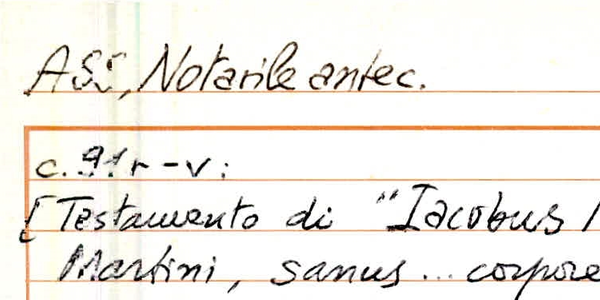 ASS, Notarile antec.
c. 91r-v:
[Testamento di "Iacobus
Martini, sanus... corpore